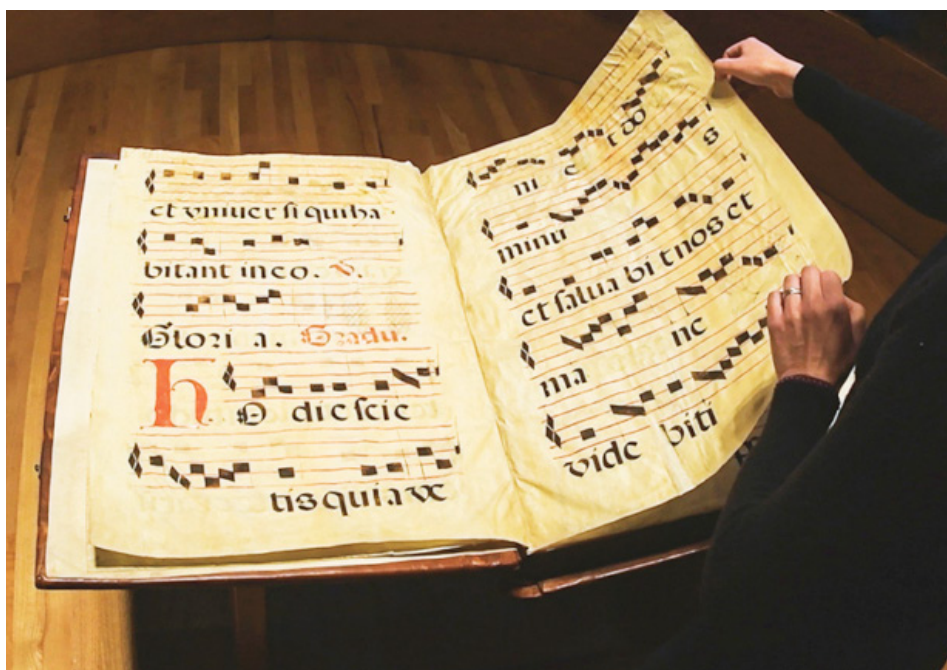 et vniuer si quiha
bitant in eo. V.
Glori a. Gradu.
h O die scie
tis quia ve
ni e t do
minu s
et salua bi t nos et
ma ne
vide biti